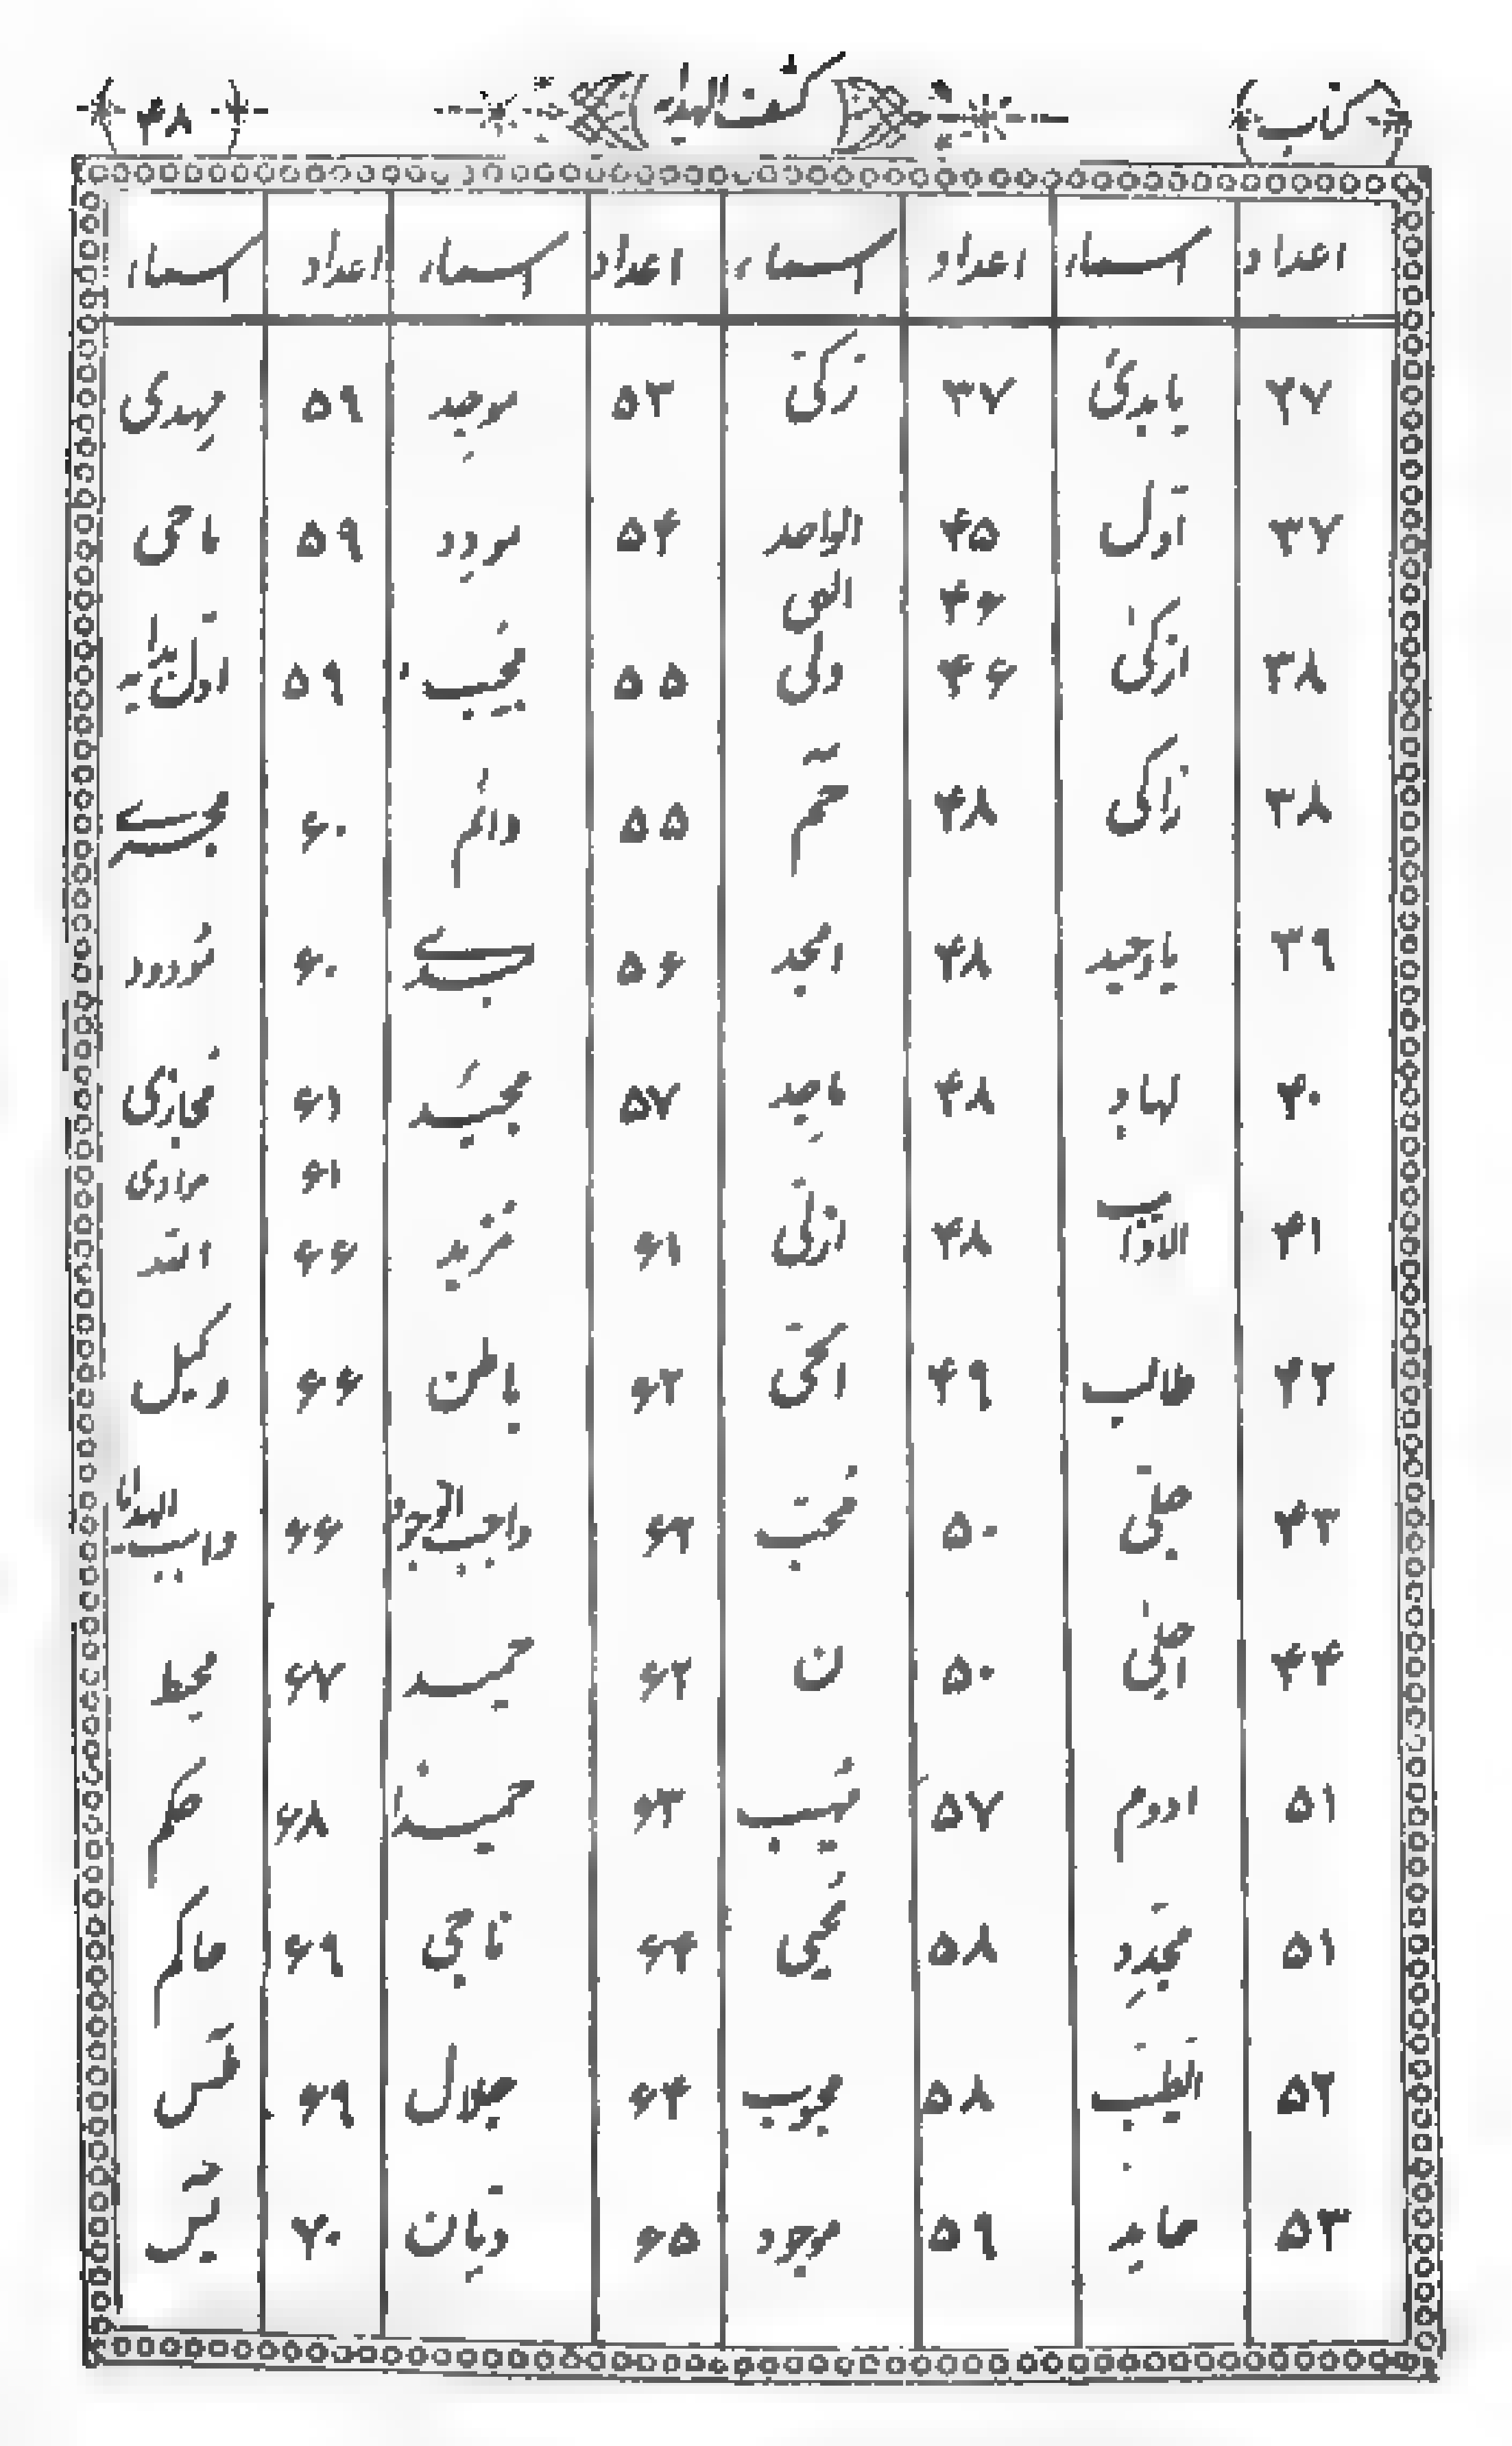 کتاب کشف الهدایه ۴۸
اعداد اسماء اعداد اسماء اعداد اسماء اعداد اسماء
۲۷ یا بدیٔ ۳۷ زکیّ ۵۳ موجِد ۵۹ مهدی
۳۷ اوّل ۴۵ الواحد ۵۴ مودِد ۵۹ ماحی
۴۶
۳۸ ازکیٰ ۴۶ ولی ۵۵ مُجیب ۵۹
۳۸ زاکی ۴۸ حٰمٓ ۵۵ دائم ۶۰
۳۹ یا وحید ۴۸ امجد ۵۶ ۶۰ مُودود
۴۰ ۴۸ ماجِد ۵۷ مجید ۶۱ مُجازی
۶۱
۴۱ ۴۸ ازلیّ ۶۱ مُزید ۶۶ اللّه
۴۲ طالب ۴۹ الحیّ ۶۲ باطن ۶۶ وکیل
۴۳ جلیّ ۵۰ مُحبّ ۶۲ واجب الوجود ۶۶
۴۴ اجلیٰ ۵۰ ن ۶۲ حمید ۶۷ محیط
۵۱ ادوم ۵۷ مُهیب ۶۳ ۶۸ حکم
۵۱ مجدِّد ۵۸ مُحیی ۶۴ ناجی ۶۹ حاکم
۵۲ الطیّب ۵۸ محبوب ۶۴ جلال ۶۹
۵۳ حامد ۵۹ موجود ۶۵ دیّان ۷۰ یٰسٓ